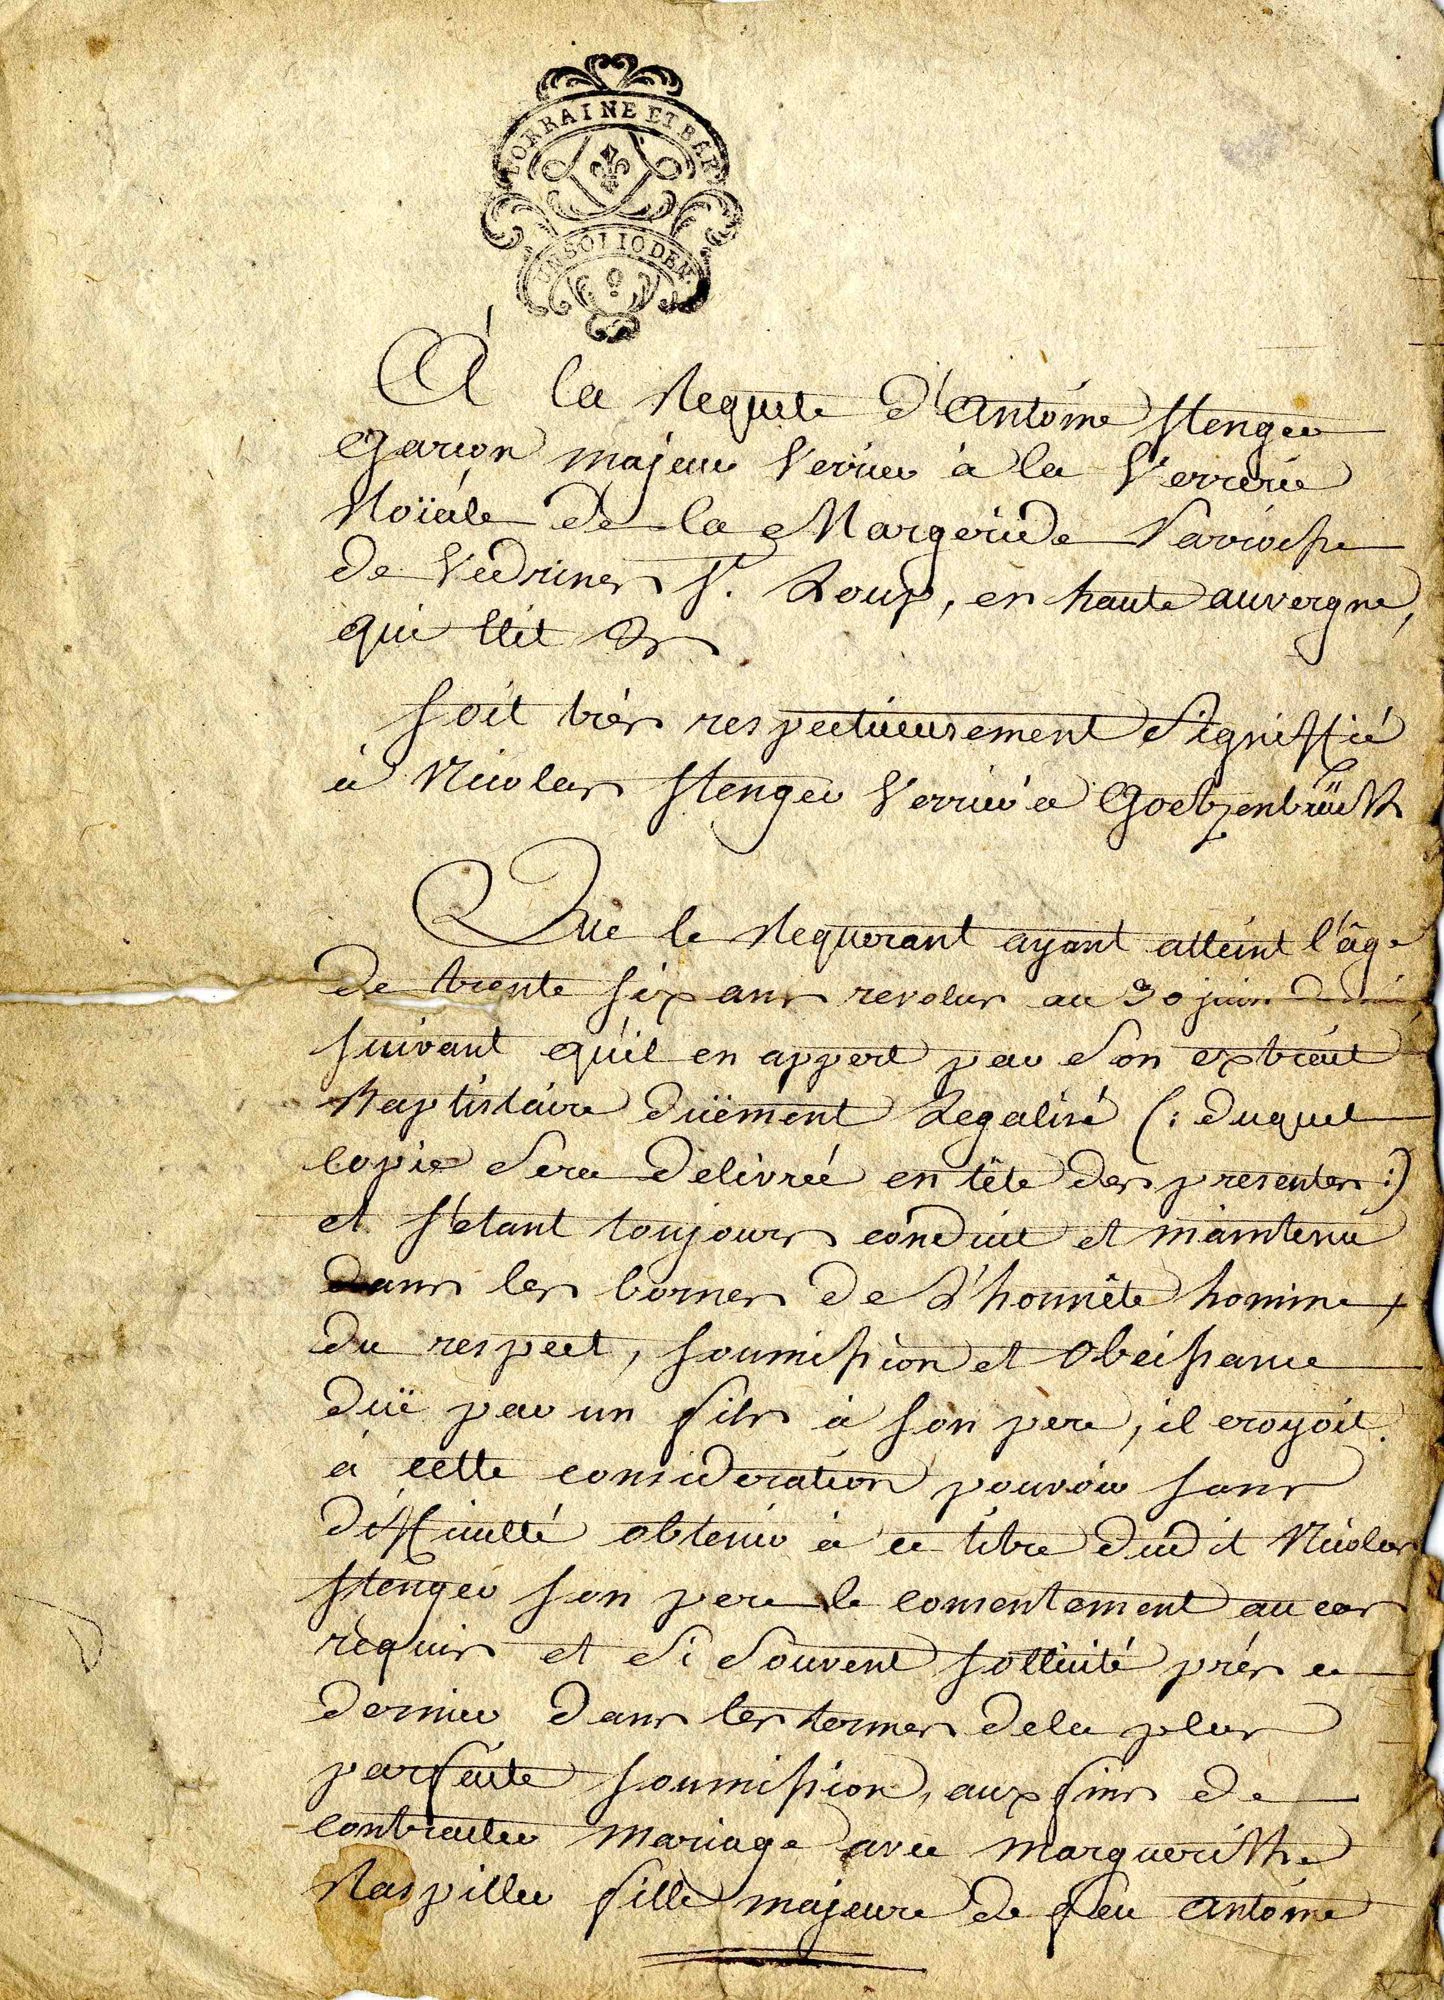 LORRAINE ET BAR
UN SOL 10 DEN.
A la Requete d'Antoine Stenger
Garcon majeur Verrier à la Verrerie
Roïale de la Margeride Parroisse
de Vedrines St. Loup, en haute auvergne,
qui Elit &
soit très respectueusement Signiffié
à Nicolas Stenger Verrier à Goetzenbrück
Que le Requerant ayant atteint l'âge
de trente six ans revolus au 30 juin
suivant qu'il en appert par Son extrait
Baptistaire duëment Legalisé (: duquel
copie Sera delivrée en tête des presentes :)
et s'etant toujours conduit et maintenu
dans les bornes de L'honnête homme,
du respect, soumission et Obeissance
duë par un fils à son pere, il croyoit
à cette consideration pouvoir sans
difficulté obtenir à ce titre dudit Nicolas
Stenger son pere le consentement au cas
requis et Si Souvent sollicité près ce
dernier dans les termes dela plus
parfaite soumission, aux fins de
contracter mariage avec Marguerithe
Raspiller fille majeure de feu Antoine